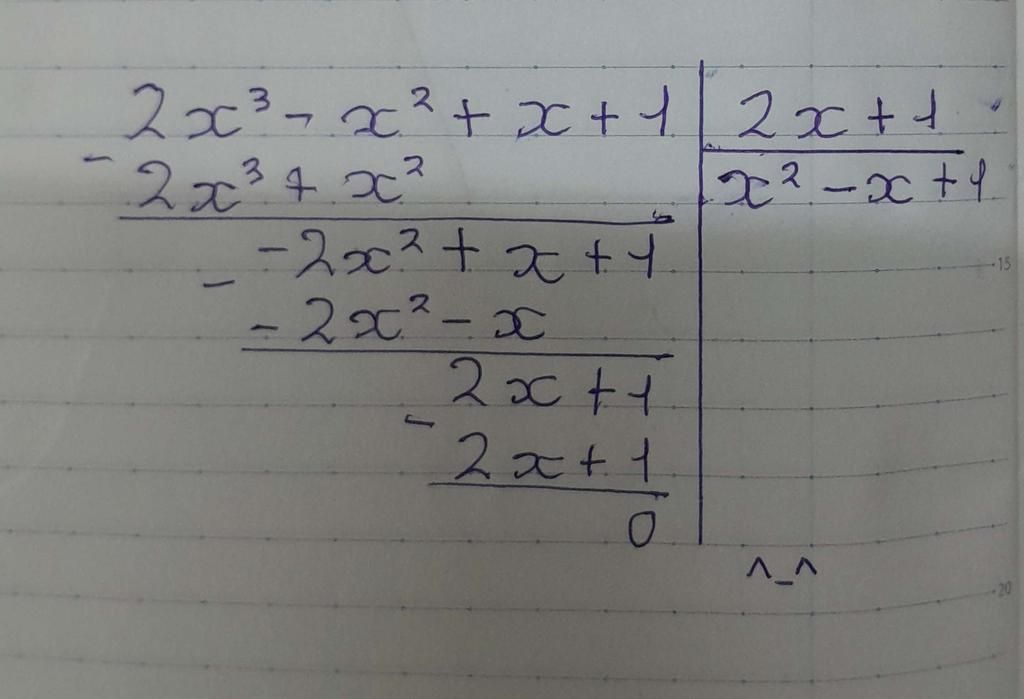 2x³ - x² + x + 1 | 2x + 1
- 2x³ + x² | x² - x + 1
-2x² + x + 1
- -2x² - x
2x + 1
- 2x + 1
0
^_^
15
20